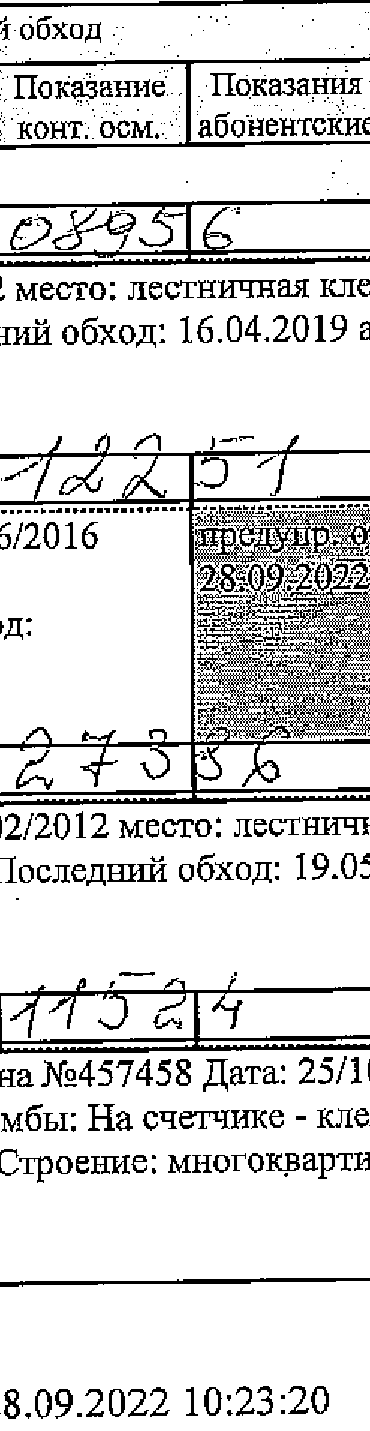 й обход
Показание Показания
конт. осм. абонентские
08956
2 место: лестничная кле
ний обход: 16.04.2019 а
12251
6/2016 предупр. о
28.09.2022
од:
27336
02/2012 место: лестничн
Последний обход: 19.05
11524
на №457458 Дата: 25/10
мбы: На счетчике - кле
Строение: многокварти
8.09.2022 10:23:20